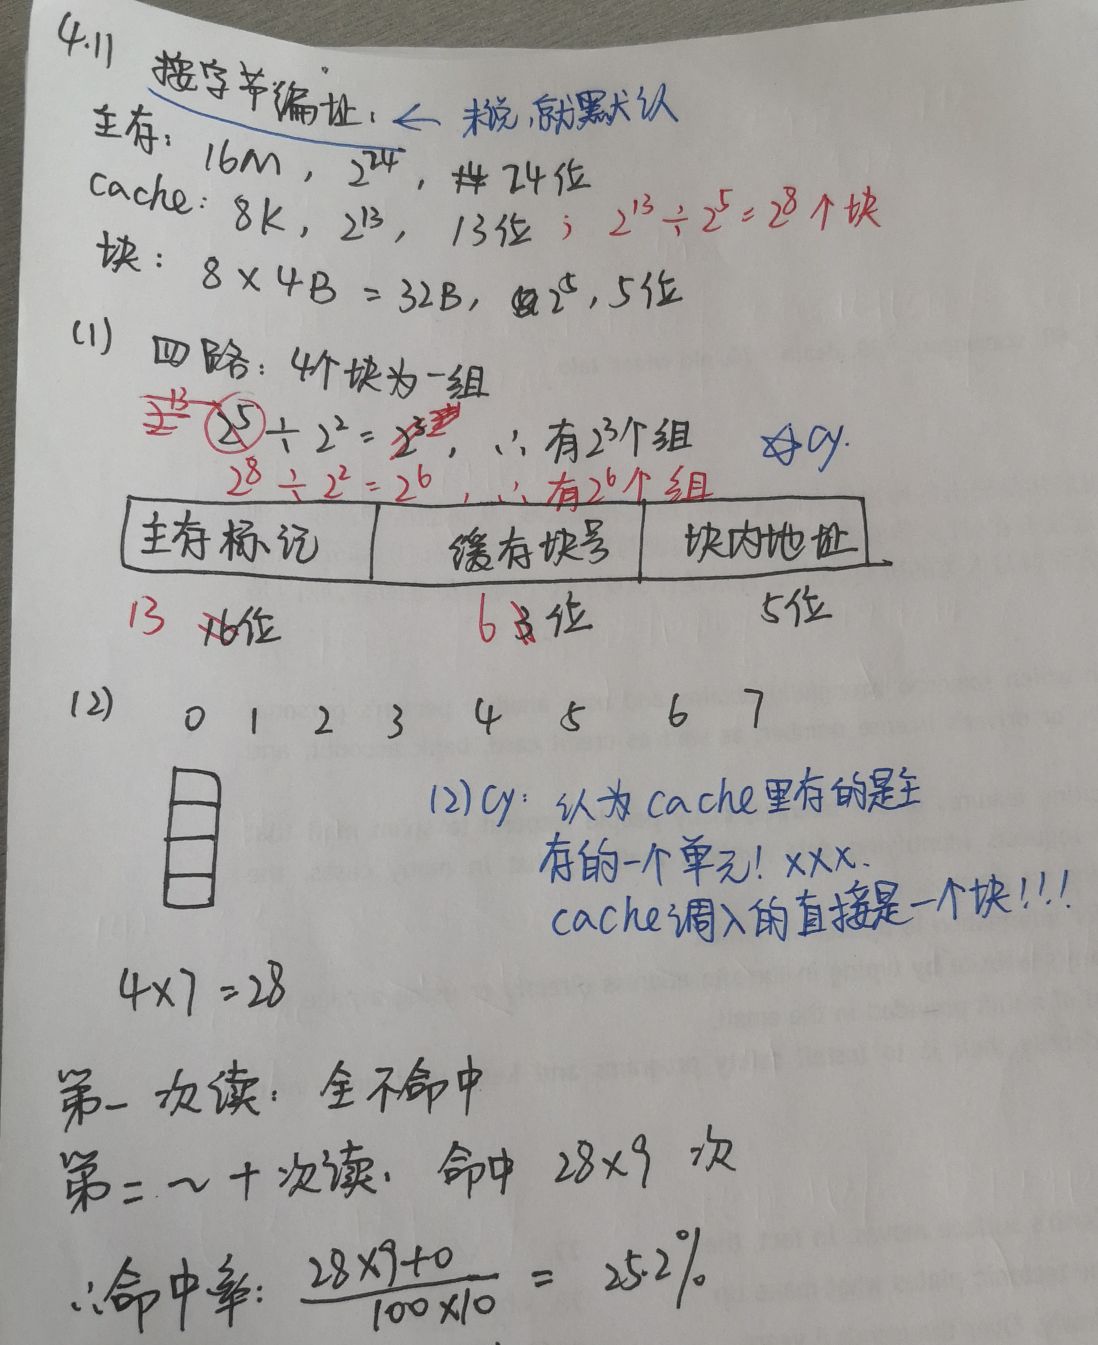 4.11 按字节编址. ← 未说,就默认
主存: 16M, 2^24, 24位
cache: 8K, 2^13, 13位 ; 2^13 ÷ 2^5 = 2^8 个块
块: 8 × 4B = 32B, 2^5, 5位
(1) 四路: 4个块为一组
2^13 2^5 ÷ 2^2 = 2^3, ∴ 有2^3个组 ☆ cy.
2^8 ÷ 2^2 = 2^6, ∴ 有2^6个组
主存标记 缓存块号 块内地址
13 16位 6 3位 5位
(2) 0 1 2 3 4 5 6 7
(2) cy: 认为cache里存的是主
存的一个单元! xxx.
cache调入的直接是一个块!!!
4×7=28
第一次读: 全不命中
第二~十次读. 命中 28×9 次
∴命中率: 28×9+0 / 100×10 = 25.2%